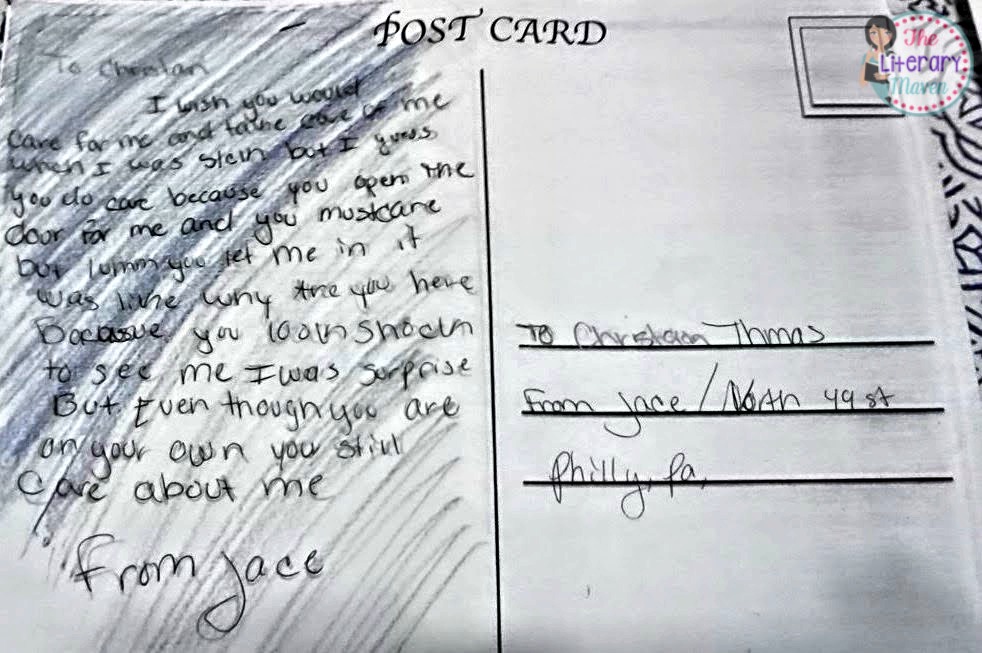 POST CARD
The
Literary
Maven
To Christan
I wish you would
care for me and take care of me
when I was stein but I guess
you do care because you open the
door for me and you mustcare
but you let me in it
was like why are you here
Because you look shock
to see me I was surprise
But Even though you are
on your own you still
Care about me
From Jace
To Christian Thmas
From Jace / North 49 st
Philly, Pa,